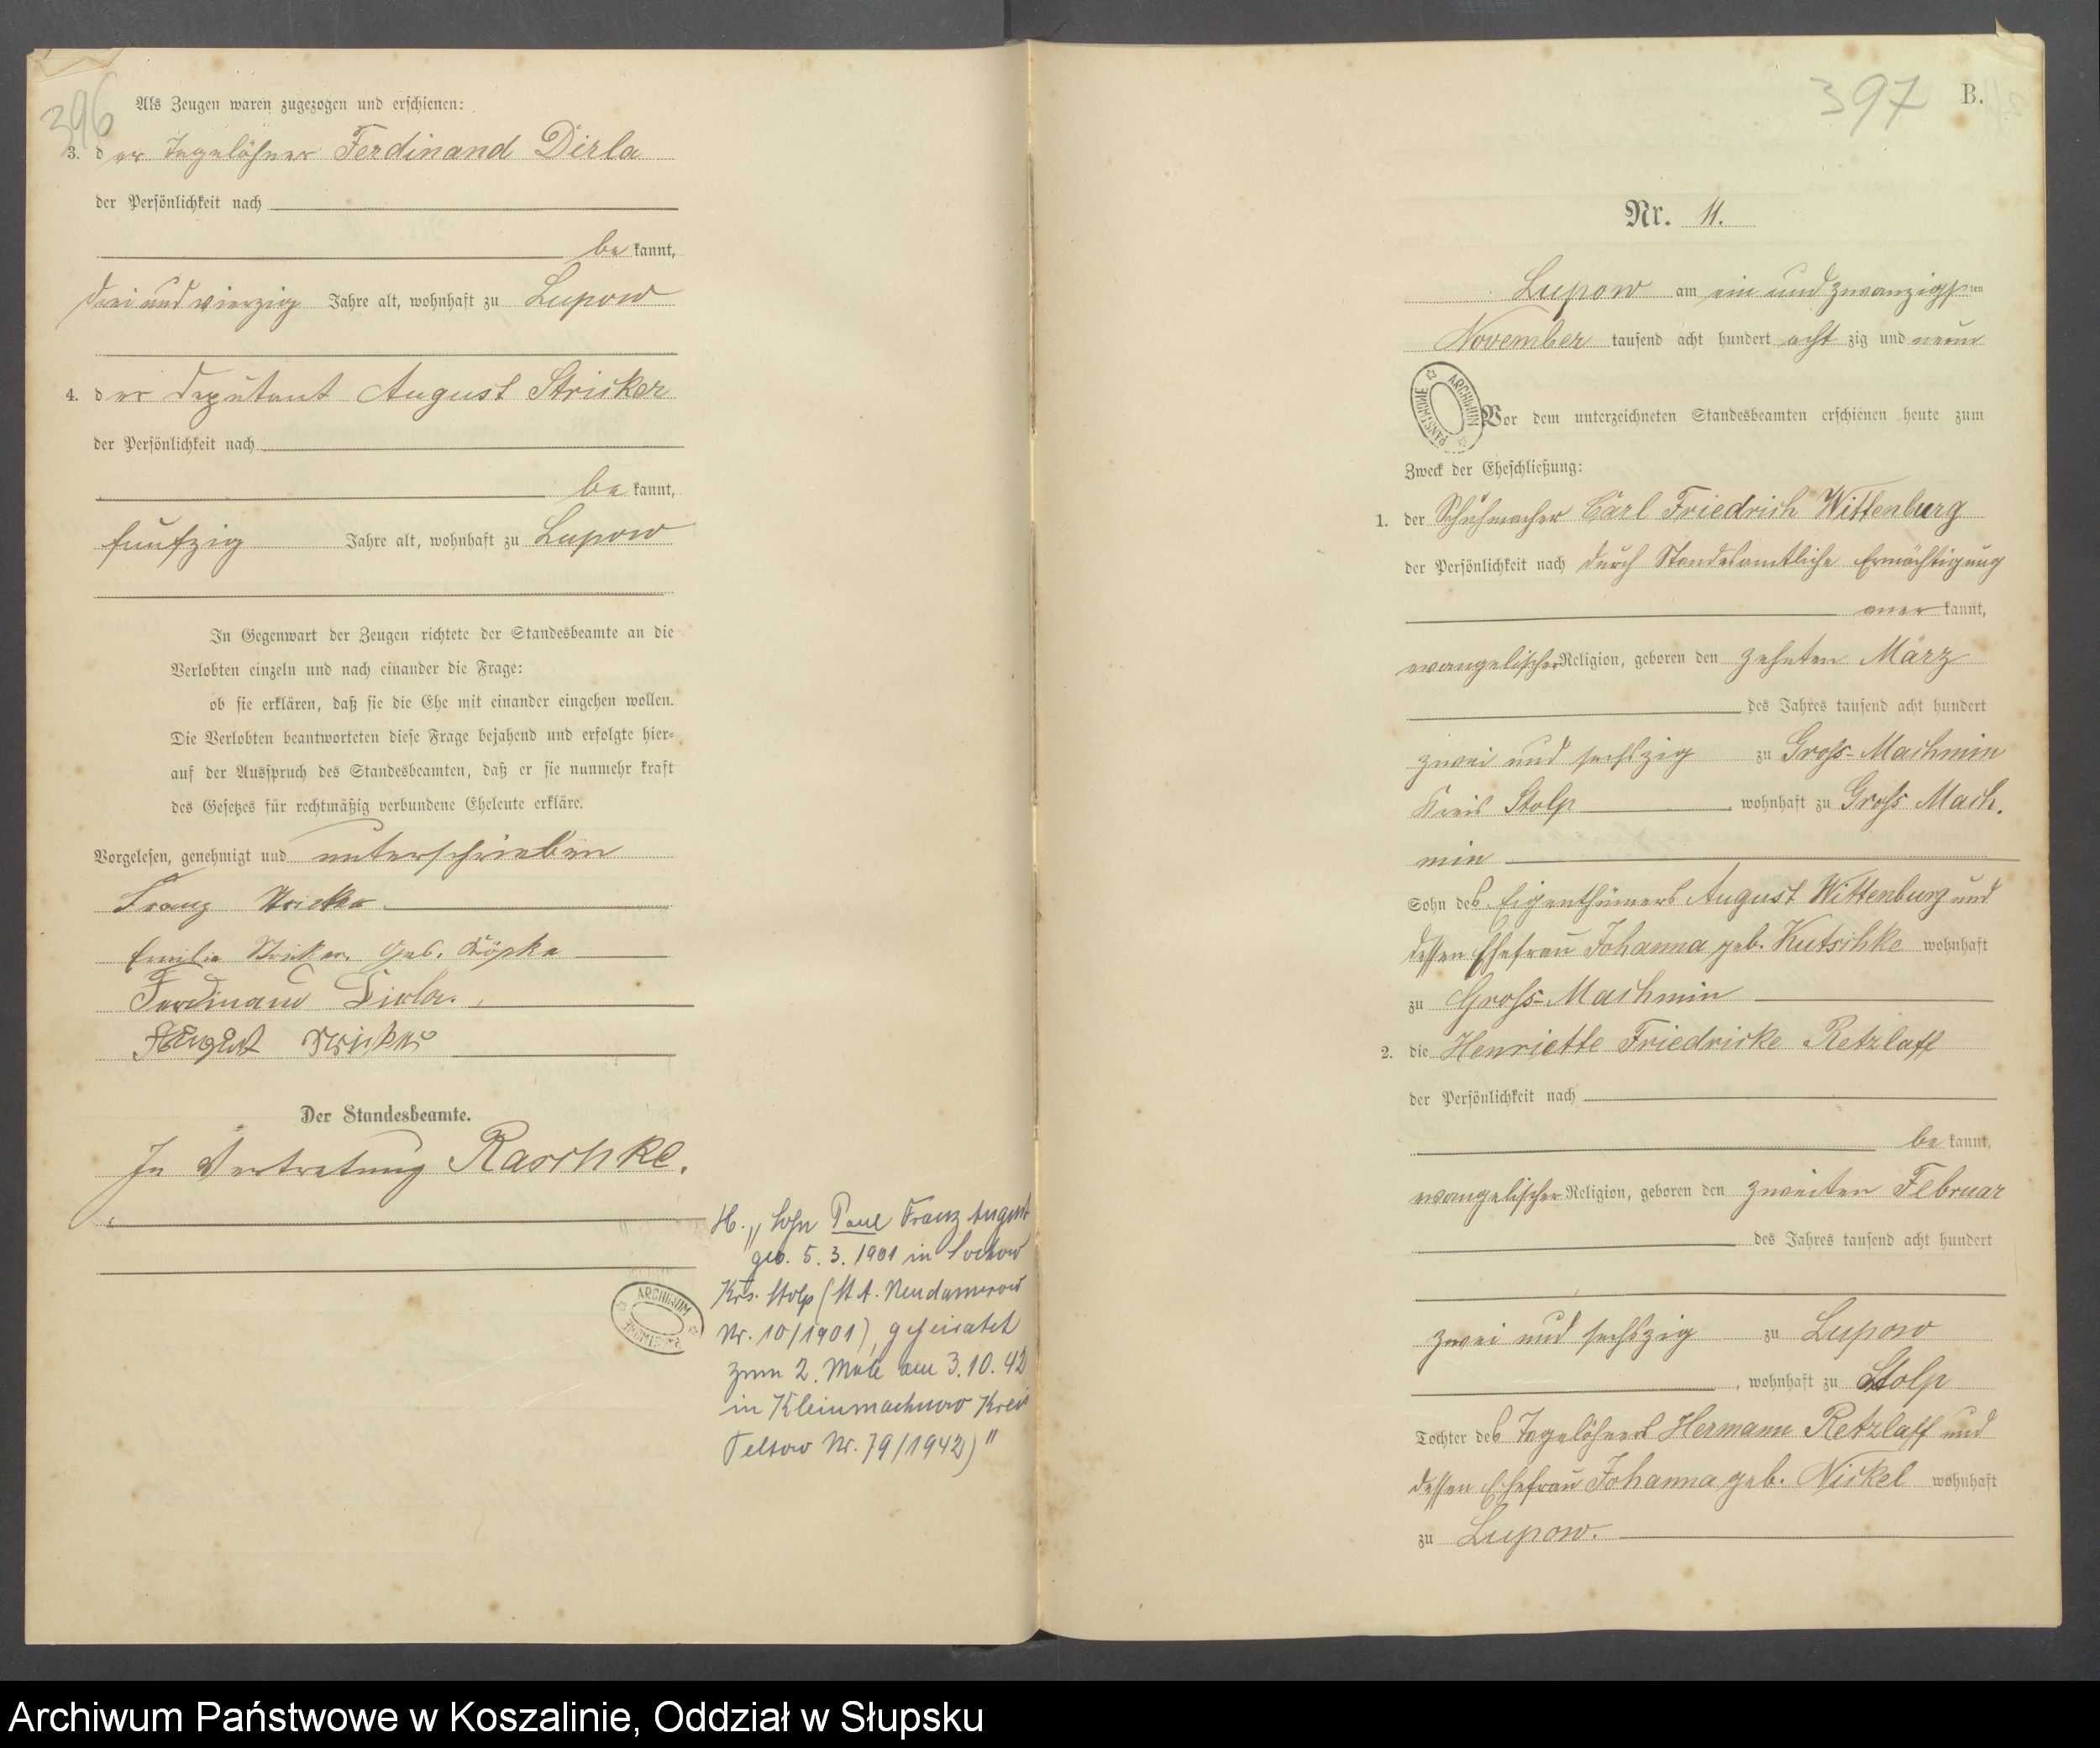 396
Als Zeugen waren zugezogen und erschienen:
3. der Tagelöhner Ferdinand Dirla
der Persönlichkeit nach
be kannt,
drei und vierzig Jahre alt, wohnhaft zu Lupow
4. der Deputant August Stricker
der Persönlichkeit nach
be kannt,
funfzig Jahre alt, wohnhaft zu Lupow
In Gegenwart der Zeugen richtete der Standesbeamte an die
Verlobten einzeln und nach einander die Frage:
ob sie erklären, daß sie die Ehe mit einander eingehen wollen.
Die Verlobten beantworteten diese Frage bejahend und erfolgte hier-
auf der Ausspruch des Standesbeamten, daß er sie nunmehr kraft
des Gesetzes für rechtmäßig verbundene Eheleute erkläre.
Vorgelesen, genehmigt und unterschrieben
Franz Stricker
Emilie Stricker, geb. Köpke
Ferdinand Dirla.
August Stricker
Der Standesbeamte.
In Vertretung Raschke.
H. „Sohn Paul Franz August
geb. 5. 3. 1901 in Lochow
Krs. Stolp (St A. Neudamerow
Nr. 10/1901), geheiratet
zum 2. Male am 3.10.42
in Kleinmachnow Kreis
Teltow Nr. 79/1942)"
ARCHIWUM PAŃSTWOWE
397
B.
Nr. 11.
Lupow am ein und zwanzigsten
November tausend acht hundert acht zig und neun
ARCHIWUM PAŃSTWOWE
Vor dem unterzeichneten Standesbeamten erschienen heute zum
Zweck der Eheschließung:
1. der Schuhmacher Carl Friedrich Wittenburg
der Persönlichkeit nach durch Standesamtliche Ermächtigung
aner kannt,
evangelischer Religion, geboren den zehnten März
des Jahres tausend acht hundert
zwei und sechszig zu Gross-Machmin
Kreis Stolp, wohnhaft zu Gross Mach-
min
Sohn des Eigenthümers August Wittenburg und
dessen Ehefrau Johanna geb. Kutschke wohnhaft
zu Gross-Machmin
2. die Henriette Friedricke Retzlaff
der Persönlichkeit nach
be kannt,
evangelischer Religion, geboren den zweiten Februar
des Jahres tausend acht hundert
zwei und sechszig zu Lupow
, wohnhaft zu Stolp
Tochter des Tagelöhners Hermann Retzlaff und
dessen Ehefrau Johanna geb. Nickel wohnhaft
zu Lupow.
Archiwum Państwowe w Koszalinie, Oddział w Słupsku